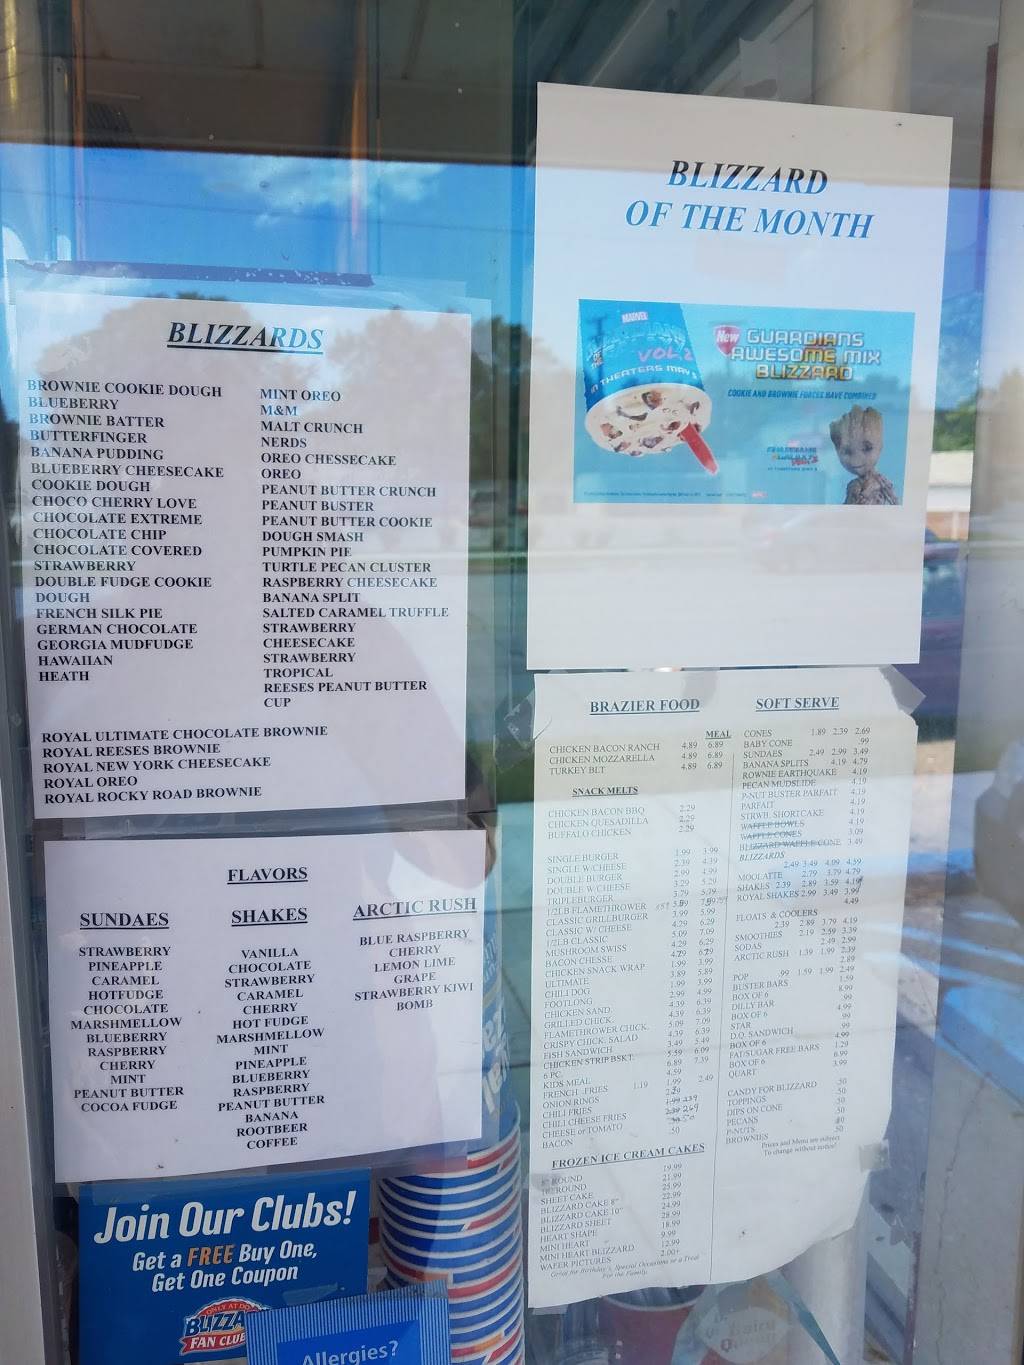 BLIZZARD
OF THE MONTH
MARVEL
VOL.2
IN THEATERS MAY 5
New GUARDIANS
AWESOME MIX
BLIZZARD
COOKIE AND BROWNIE FORCES HAVE COMBINED
BLIZZARDS
BROWNIE COOKIE DOUGH
BLUEBERRY
BROWNIE BATTER
BUTTERFINGER
BANANA PUDDING
BLUEBERRY CHEESECAKE
COOKIE DOUGH
CHOCO CHERRY LOVE
CHOCOLATE EXTREME
CHOCOLATE CHIP
CHOCOLATE COVERED
STRAWBERRY
DOUBLE FUDGE COOKIE
DOUGH
FRENCH SILK PIE
GERMAN CHOCOLATE
GEORGIA MUDFUDGE
HAWAIIAN
HEATH
MINT OREO
M&M
MALT CRUNCH
NERDS
OREO CHESSECAKE
OREO
PEANUT BUTTER CRUNCH
PEANUT BUSTER
PEANUT BUTTER COOKIE
DOUGH SMASH
PUMPKIN PIE
TURTLE PECAN CLUSTER
RASPBERRY CHEESECAKE
BANANA SPLIT
SALTED CARAMEL TRUFFLE
STRAWBERRY
CHEESECAKE
STRAWBERRY
TROPICAL
REESES PEANUT BUTTER
CUP
ROYAL ULTIMATE CHOCOLATE BROWNIE
ROYAL REESES BROWNIE
ROYAL NEW YORK CHEESECAKE
ROYAL OREO
ROYAL ROCKY ROAD BROWNIE
FLAVORS
SUNDAES
STRAWBERRY
PINEAPPLE
CARAMEL
HOTFUDGE
CHOCOLATE
MARSHMELLOW
BLUEBERRY
RASPBERRY
CHERRY
MINT
PEANUT BUTTER
COCOA FUDGE
SHAKES
VANILLA
CHOCOLATE
STRAWBERRY
CARAMEL
CHERRY
HOT FUDGE
MARSHMELLOW
MINT
PINEAPPLE
BLUEBERRY
RASPBERRY
PEANUT BUTTER
BANANA
ROOTBEER
COFFEE
ARCTIC RUSH
BLUE RASPBERRY
CHERRY
LEMON LIME
GRAPE
STRAWBERRY KIWI
BOMB
BRAZIER FOOD
MEAL
CHICKEN BACON RANCH 4.89 6.89
CHICKEN MOZZARELLA 4.89 6.89
TURKEY BLT 4.89 6.89
SNACK MELTS
CHICKEN BACON BBQ 2.29
CHICKEN QUESADILLA 2.29
BUFFALO CHICKEN 2.29
SINGLE BURGER 1.99 3.99
SINGLE W/CHEESE 2.39 4.39
DOUBLE BURGER 2.99 4.99
DOUBLE W/CHEESE 3.29 5.29
TRIPLEBURGER 3.79 5.79
1/2LB FLAMETHROWER
CLASSIC GRILLBURGER 3.99 5.99
CLASSIC W/ CHEESE 4.29 6.29
1/2LB CLASSIC 5.09 7.09
MUSHROOM SWISS 4.29 6.29
BACON CHESSE 4.29 6.29
CHICKEN SNACK WRAP 1.99 3.99
ULTIMATE 3.89 5.89
CHILI DOG 1.99 3.99
FOOTLONG 2.99 4.99
CHICKEN SAND. 4.39 6.39
GRILLED CHICK. 4.39 6.39
FLAMETHROWER CHICK. 5.09 7.09
CRISPY CHICK. SALAD 4.39 6.39
FISH SANDWICH 3.49 5.49
CHICKEN STRIP BSKT. 5.59 6.09
6 PC. 6.89 7.39
KIDS MEAL 4.59
FRENCH FRIES 1.19 1.99 2.49
ONION RINGS
CHILI FRIES 239
CHILI CHEESE FRIES 269
CHEESE or TOMATO
BACON .50
FROZEN ICE CREAM CAKES
8" ROUND 19.99
10" ROUND 21.99
SHEET CAKE 25.99
BLIZZARD CAKE 8" 22.99
BLIZZARD CAKE 10" 24.99
BLIZZARD SHEET 28.99
HEART SHAPE 18.99
MINI HEART 9.99
MINI HEART BLIZZARD 12.99
WAFER PICTURES 2.00+
Great for Birthday's, Special Occasions or a Treat
For the Family.
SOFT SERVE
CONES 1.89 2.39 2.69
BABY CONE .99
SUNDAES 2.49 2.99 3.49
BANANA SPLITS 4.19 4.79
ROWNIE EARTHQUAKE 4.19
PECAN MUDSLIDE 4.19
P-NUT BUSTER PARFAIT 4.19
PARFAIT 4.19
STRWB. SHORTCAKE 4.19
WAFFLE BOWLS 4.19
WAFFLE CONES 3.09
BLIZZARD WAFFLE CONE 3.49
BLIZZARDS
2.49 3.49 4.09 4.59
MOOLATTE 2.79 3.79 4.79
SHAKES 2.39 2.89 3.59 4.19
ROYAL SHAKES 2.99 3.49 3.99
4.49
FLOATS & COOLERS
2.39 2.89 3.79 4.19
SMOOTHIES 2.19 2.59 3.39
SODAS 2.49 2.99
ARCTIC RUSH 1.39 1.99 2.39
2.89
POP .99 1.59 1.99 2.49
BUSTER BARS 1.59
BOX OF 6 8.99
DILLY BAR .99
BOX OF 6 4.99
STAR .99
D.Q. SANDWICH .99
BOX OF 6 4.99
FAT/SUGAR FREE BARS 1.29
BOX OF 6 6.99
QUART 3.99
CANDY FOR BLIZZARD .50
TOPPINGS .50
DIPS ON CONE .50
PECANS
P-NUTS .50
BROWNIES
Prices and Menu are subject
To change without notice!
Join Our Clubs!
Get a FREE Buy One,
Get One Coupon
ONLY AT DQ
BLIZZA
FAN CLUB
Allergies?